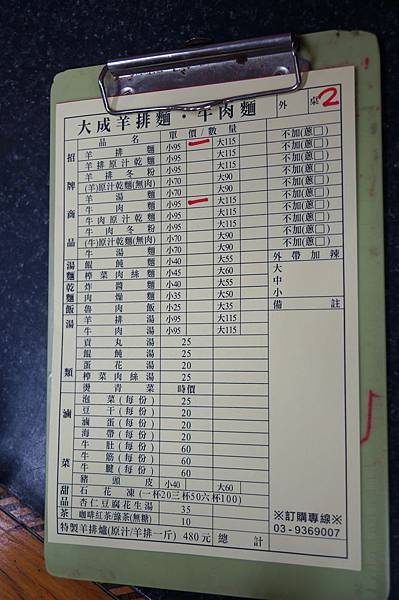 大成羊排麵・牛肉麵 外 桌2
品名 單價/數量
招牌商品
羊排麵 小95 大115 不加(蔥□)
羊排原汁乾麵 小95 大115 不加(蔥□)
羊排冬粉 小95 大115 不加(蔥□)
(羊)原汁乾麵(無肉) 小70 大90 不加(蔥□)
羊湯麵 小70 大90 不加(蔥□)
牛肉麵 小95 大115 不加(蔥□)
牛肉原汁乾麵 小95 大115 不加(蔥□)
牛肉冬粉 小95 大115 不加(蔥□)
(牛)原汁乾麵(無肉) 小70 大90 不加(蔥□)
牛湯麵 小70 大90
外帶加辣
大
中
小
備註
湯麵
餛飩麵 小40 大55
榨菜肉絲麵 小45 大60
乾麵
炸醬麵 小40 大55
肉燥麵 小35 大50
飯
魯肉飯 小25 大35
湯類
羊排湯 小95 大115
牛肉湯 小95 大115
貢丸湯 25
餛飩湯 25
蛋花湯 20
榨菜肉絲湯 25
燙青菜 時價
滷菜
泡菜(每份) 25
豆干(每份) 20
滷蛋(每份) 20
海帶(每份) 20
牛肚(每份) 60
牛筋(每份) 60
牛腱(每份) 60
豬頭皮 小40 大60
甜品
石花凍(一杯20三杯50六杯100)
杏仁豆腐花生湯 35
茶 咖啡紅茶/綠茶(無糖) 10
特製羊排爐(原汁/羊排一斤) 480元 總計
※訂購專線※
03-9369007